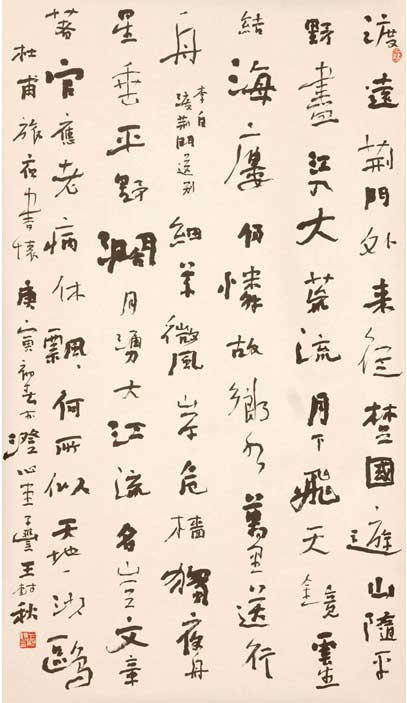 渡遠荊門外來從楚國遊山隨平
野盡江入大荒流月下飛天鏡雲生
結海樓仍憐故鄉水萬里送行
舟 李白渡荊門送別 細草微風岸危檣獨夜舟
星垂平野闊月湧大江流名豈文章
著官應老病休飄飄何所似天地一沙鷗
杜甫旅夜書懷庚寅初春於澄心堂王樹秋